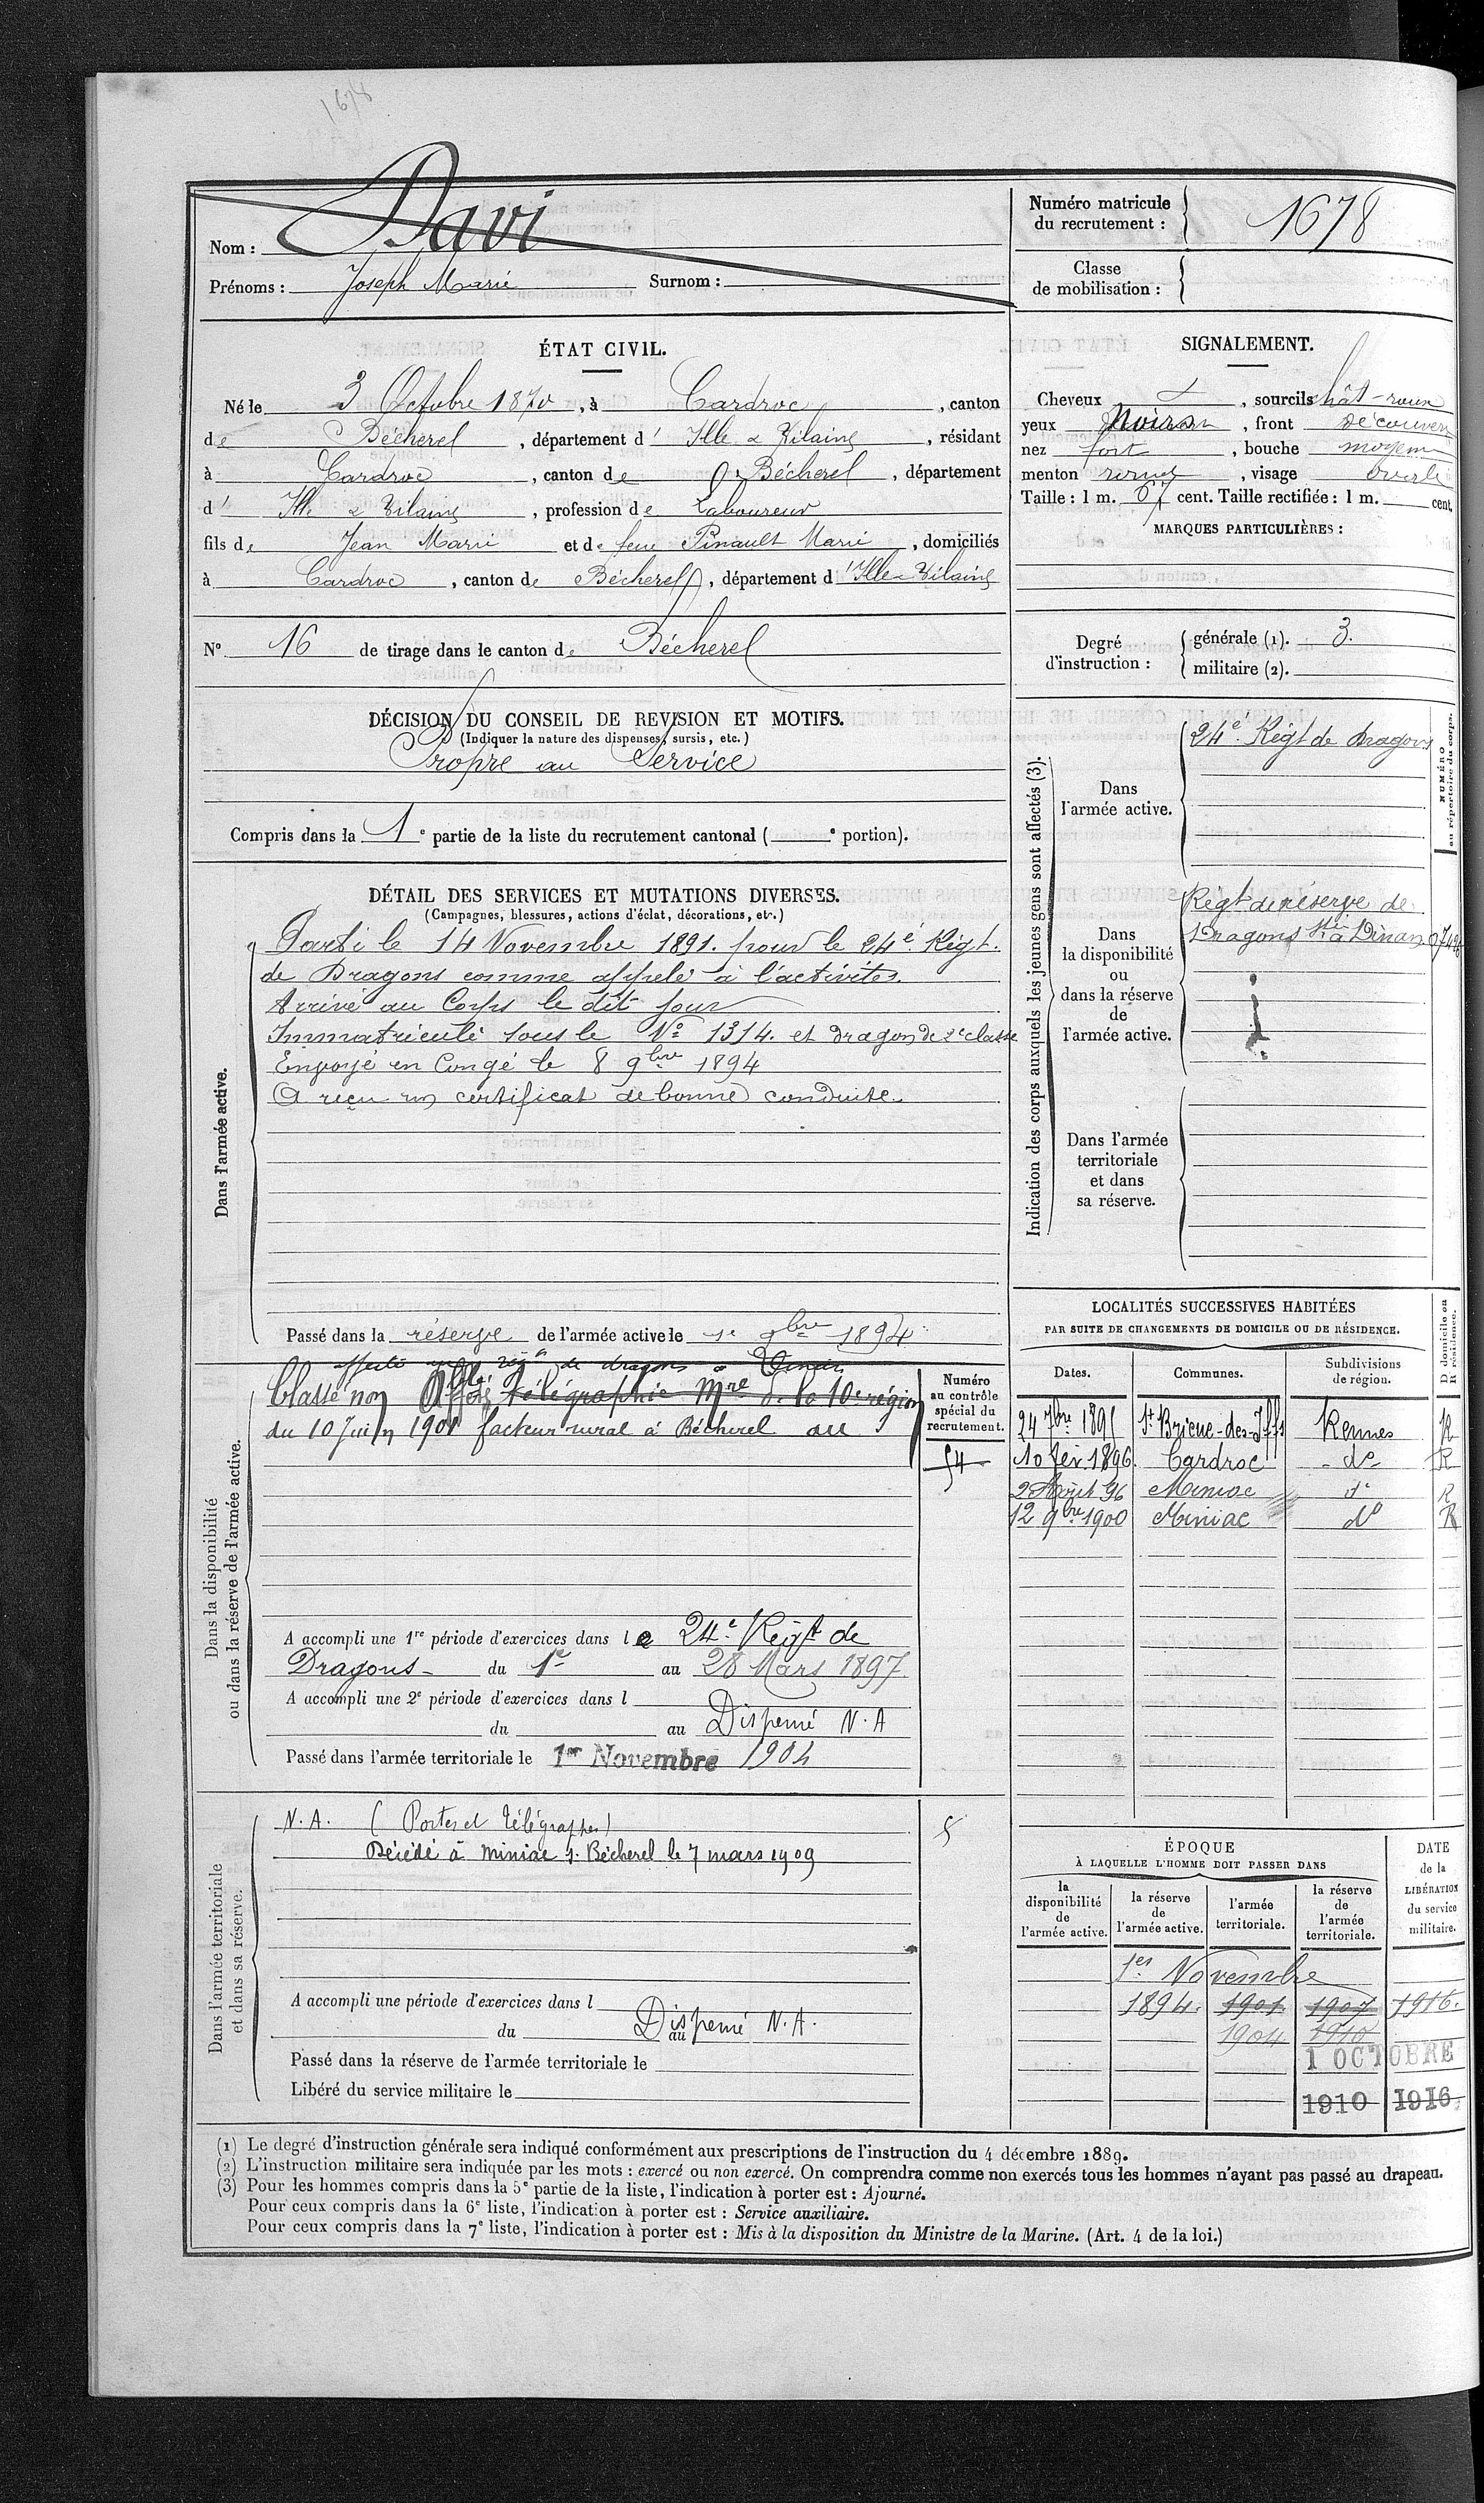 1678
Nom : Davi
Prénoms : Joseph Marie Surnom :
Numéro matricule du recrutement : 1678
Classe de mobilisation :
ÉTAT CIVIL.
Né le 3 Octobre 1870, à Cardroc, canton
de Bécherel, département d' Ille & Vilaine, résidant
à Cardroc, canton de Bécherel, département
d' Ille & Vilaine, profession de Laboureur
fils de Jean Marie et de feue Pinault Marie, domiciliés
à Cardroc, canton de Bécherel, département d'Ille & Vilaine
N° 16 de tirage dans le canton de Bécherel
SIGNALEMENT.
Cheveux , sourcils chât-roux
yeux , front découvert
nez fort, bouche moyenne
menton rond, visage ovale
Taille : 1 m. 67 cent. Taille rectifiée : 1 m. cent.
MARQUES PARTICULIÈRES :
Degré d'instruction :
générale (1). 3.
militaire (2).
DÉCISION DU CONSEIL DE REVISION ET MOTIFS.
(Indiquer la nature des dispenses, sursis, etc.)
Propre au Service
Compris dans la 1e partie de la liste du recrutement cantonal ( e portion).
DÉTAIL DES SERVICES ET MUTATIONS DIVERSES.
(Campagnes, blessures, actions d'éclat, décorations, etc.)
Dans l'armée active.
Parti le 14 Novembre 1891. pour le 24è Régt.
de Dragons comme appelé à l'activité.
Arrivé au Corps le dit jour
Immatriculé sous le N° 1314. et dragon de 2e classe
Envoyé en Congé le 8 9bre 1894
A reçu un certificat de bonne conduite.
Passé dans la réserve de l'armée active le 1e 9bre 1894
Indication des corps auxquels les jeunes gens sont affectés (3).
NUMÉRO au répertoire du corps.
Dans l'armée active.
24è Régt de dragons
Dans la disponibilité ou dans la réserve de l'armée active.
Régt de réserve de
Dragons à Dinan
Dans l'armée territoriale et dans sa réserve.
Dans la disponibilité ou dans la réserve de l'armée active.
affecté au régt de dragons à Dinan
Classé non Affté télégraphie Mre de la 10e région
du 10 Juin 1901 facteur rural à Bécherel au
Numéro au contrôle spécial du recrutement.
54
A accompli une 1re période d'exercices dans le 24e Régt de
Dragons du 1er au 28 Mars 1897
A accompli une 2e période d'exercices dans l
du au Dispensé N. A
Passé dans l'armée territoriale le 1er Novembre 1904
LOCALITÉS SUCCESSIVES HABITÉES
PAR SUITE DE CHANGEMENTS DE DOMICILE OU DE RÉSIDENCE.
Dates. Communes. Subdivisions de région. D domicile ou R résidence.
24 7bre 1895 St Brieuc-des-Iffs Rennes R
10 fév. 1896. Cardroc do R
2 Août 96 Miniac do R
12 9bre 1900 Miniac do R
Dans l'armée territoriale et dans sa réserve.
N. A. (Postes et Télégraphes)
Décédé à Miniac s. Bécherel le 7 mars 1909
A accompli une période d'exercices dans l
du au Dispensé N.A.
Passé dans la réserve de l'armée territoriale le
Libéré du service militaire le
ÉPOQUE
À LAQUELLE L'HOMME DOIT PASSER DANS
la disponibilité de l'armée active.
la réserve de l'armée active.
l'armée territoriale.
la réserve de l'armée territoriale.
DATE de la LIBÉRATION du service militaire.
1er Novembre
1894. 1901 1907 1916.
1904 1910
1 OCTOBRE
1910 1916
(1) Le degré d'instruction générale sera indiqué conformément aux prescriptions de l'instruction du 4 décembre 1889.
(2) L'instruction militaire sera indiquée par les mots : exercé ou non exercé. On comprendra comme non exercés tous les hommes n'ayant pas passé au drapeau.
(3) Pour les hommes compris dans la 5e partie de la liste, l'indication à porter est : Ajourné.
Pour ceux compris dans la 6e liste, l'indication à porter est : Service auxiliaire.
Pour ceux compris dans la 7e liste, l'indication à porter est : Mis à la disposition du Ministre de la Marine. (Art. 4 de la loi.)